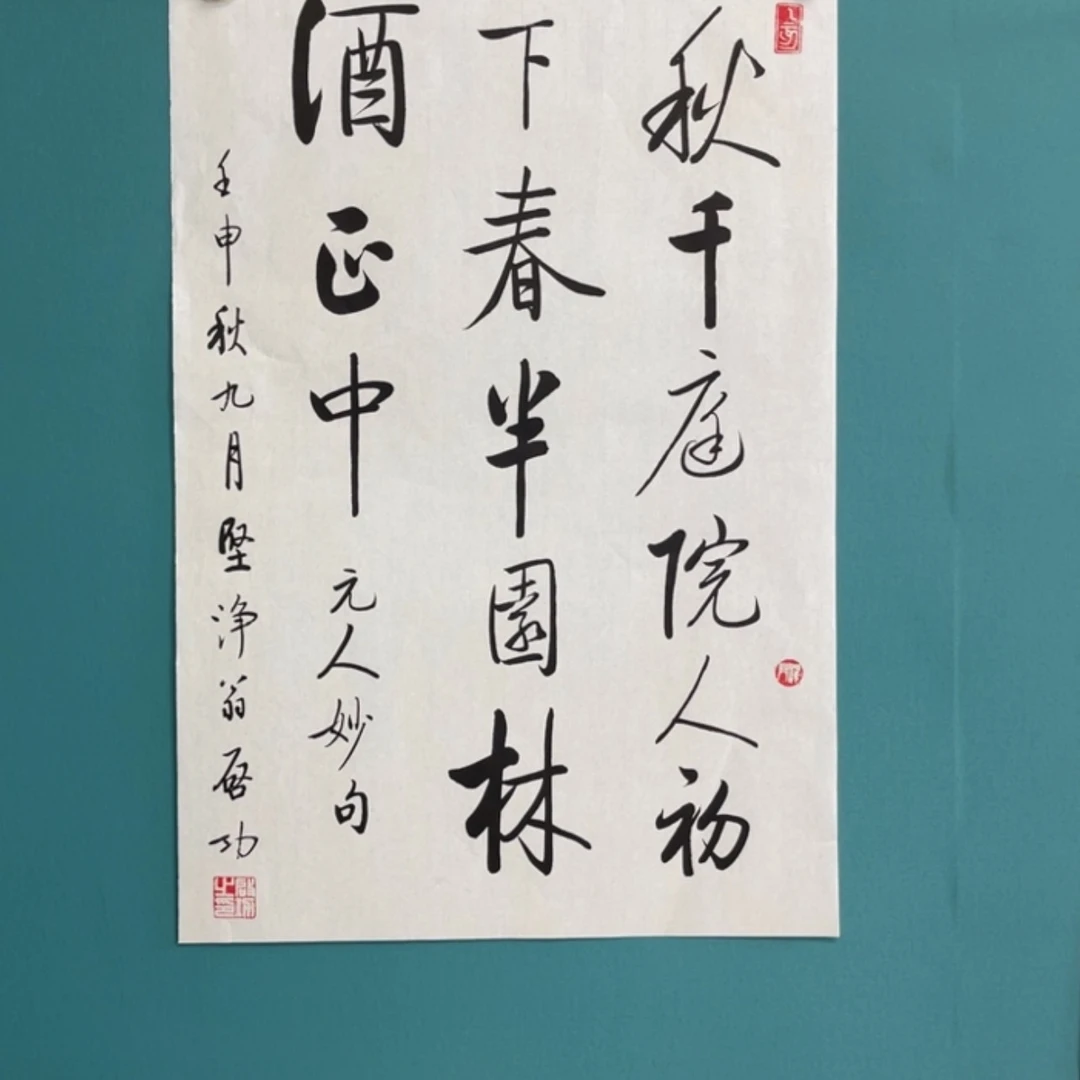 秋千庭院人初
下春半園林
酒正中
元人妙句
壬申秋九月堅浄翁啓功